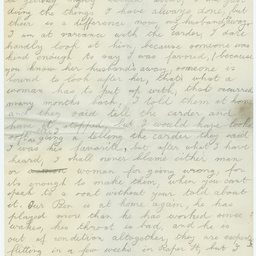 doing the things I have always done, but
their is a difference now, my husband
I am at variance with the carder, I dare
hardly look at him, because someone was
kind enough to say I was favored, (because
you know her husband's away, someone is
bound to look after her, that's what a
woman has to put up with, that occurred
many months back, I told them at home
and they said tell the carder and
have it stopped, I would have looked
soft telling the carder they said
I was his favorite, but after what I have
heard, I shall never blame either man
or woman for going wrong, for
its enough to make them, when you can't
speak to a soul without your told about
it. Our Ben is at home again, he has
played more than he has worked since
wakes, his throat is bad, and he is
out of condition altogether, they are
flitting in a few weeks in Roper St, but I